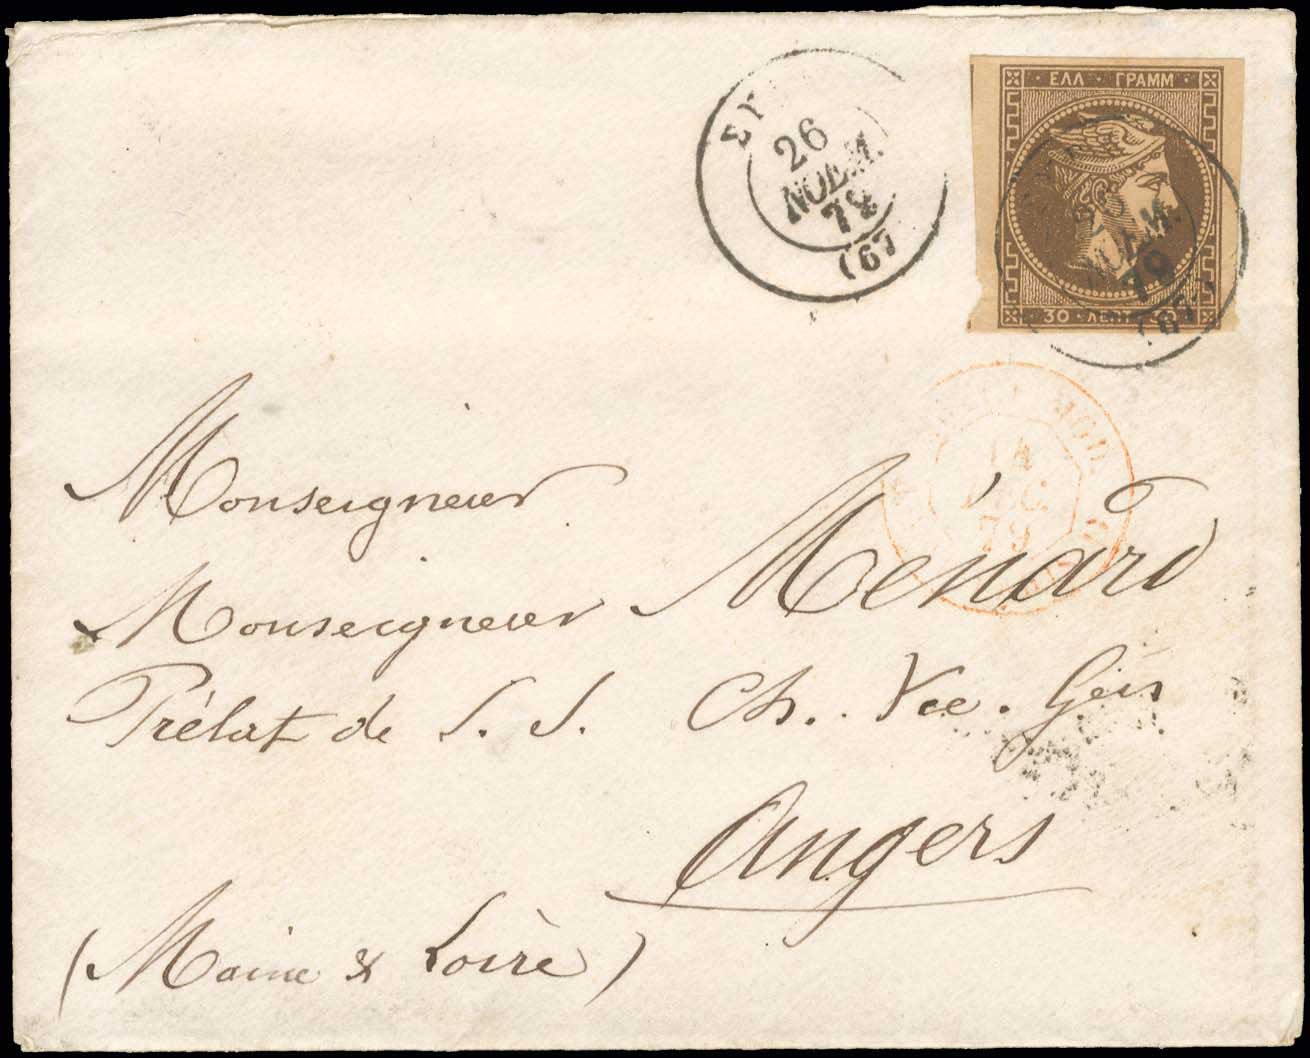 ΣΥ
26
ΝΟΕΜ.
79
(67
ΕΛΛ · ΓΡΑΜΜ
30 · ΛΕΠΤ
79
(67
MOD.
14
DEC.
79
Monseigneur
Monseigneur Ménard
Prélat de S. S. Ch. Vce. Gén
Angers
(Maine & Loire)